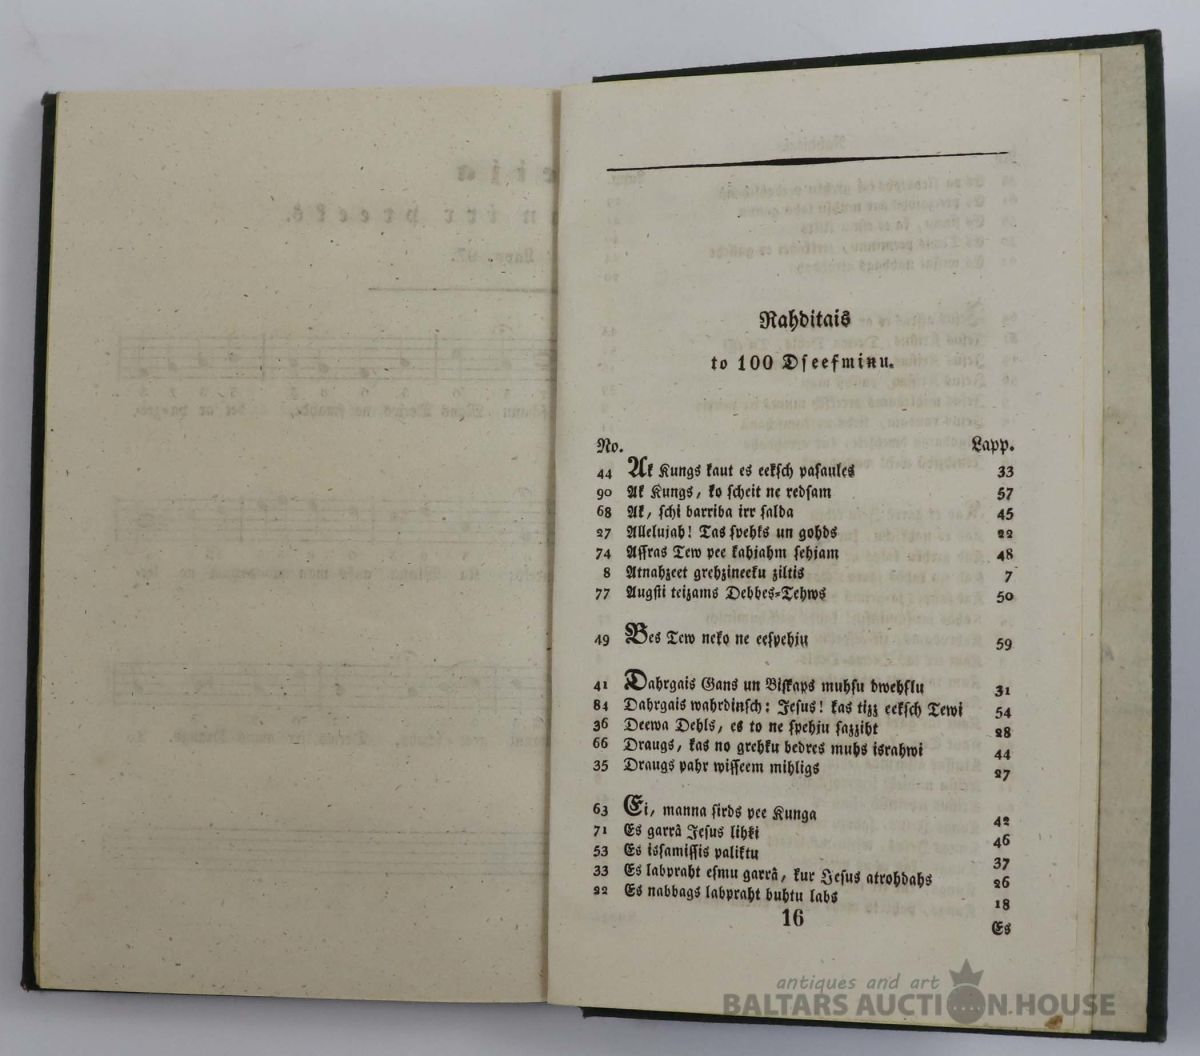 Rahditais
to 100 Dſeeſminu.
No. Lapp.
44 Ak Kungs kaut es eekſch paſaules 33
90 Ak Kungs, ko ſcheit ne redſam 57
68 Ak, ſchi barriba irr ſalda 45
27 Allelujah! Tas ſpehks un gohds 22
74 Aſſras Tew pee kahjahm ſehjam 48
8 Atnahzeet grehzineeku ziltis 7
77 Augſti teizams Debbes-Tehws 50
49 Bes Tew neko ne eeſpehju 59
41 Dahrgais Gans un Biſkaps muhſu dwehſlu 31
84 Dahrgais wahrdinſch: Jeſus! kas tizz eekſch Tewi 54
36 Deewa Dehls, es to ne ſpehju ſazziht 28
66 Draugs, kas no grehku bedres muhs israhwi 44
35 Draugs pahr wiſſeem mihligs 27
63 Ei, manna ſirds pee Kunga 42
71 Es garrâ Jeſus lihki 46
53 Es isſamiſſis paliktu 37
33 Es labpraht eſmu garrâ, kur Jeſus atrohdahs 26
22 Es nabbags labpraht buhtu labs 18
16
Es
antiques and art
BALTARS AUCTION HOUSE